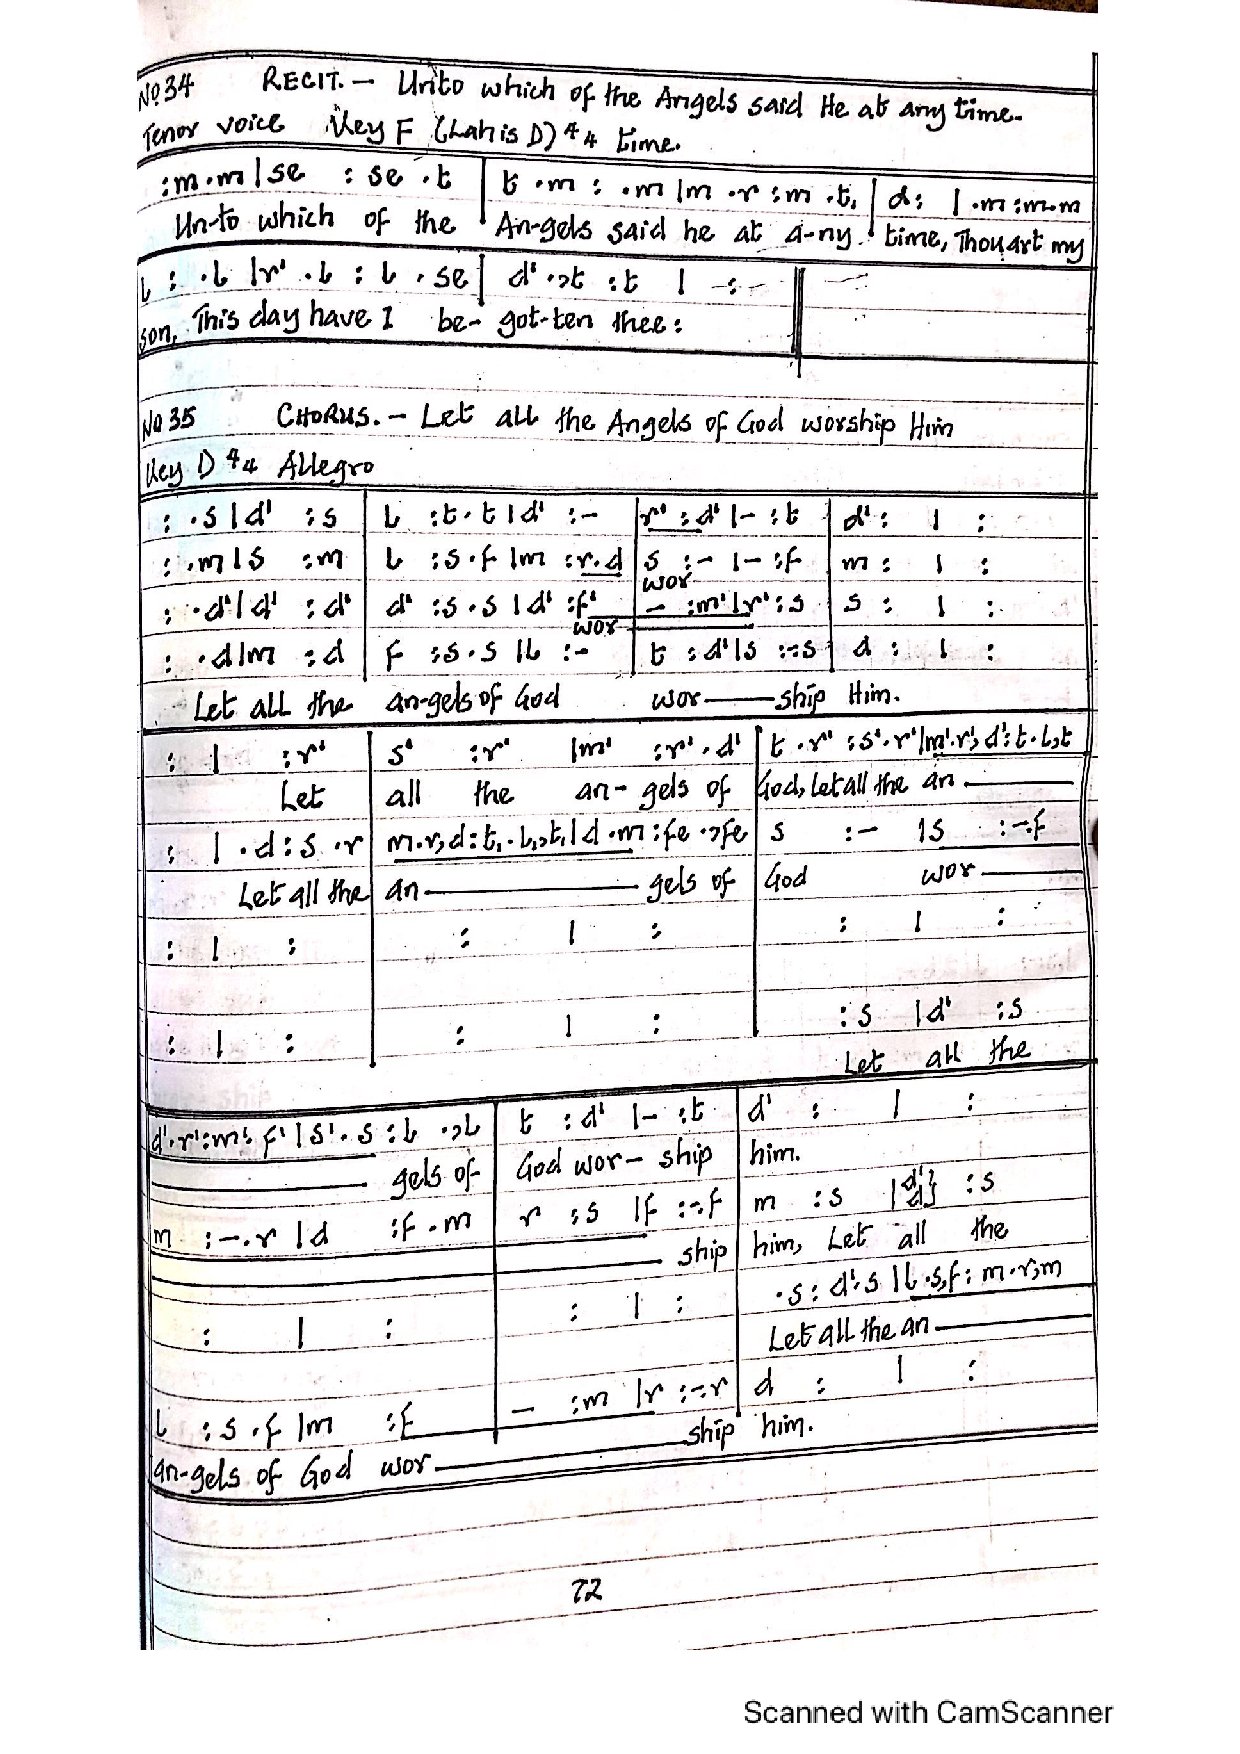 No 34 RECIT. – Unto which of the Angels said He at any time.
Tenor voice Key F (Lah is D) 4/4 time.
:m.m|se :se.t | t.m : .m|m.r :m.t, | d: | .m:m.m
Un-to which of the An-gels said he at a-ny time, Thou art my
l : .l |r'.l : l.se | d'.,t :t | -:-
son, This day have I be-got-ten thee:
No 35 CHORUS. – Let all the Angels of God worship Him
Key D 4/4 Allegro
: .s|d' :s | l :t.t|d' :- | r' :d'|- :t | d': | :
: .m|s :m | l :s.f|m :r.d | s :-|- :f | m: | :
wor
: .d'|d' :d' | d' :s.s|d' :f' | - :m'|r' :s | s: | :
wor
: .d|m :d | f :s.s|l :- | t :d'|s :-:s | d: | :
Let all the an-gels of God wor——ship Him.
: | :r' | s' :r' |m' :r'.d' | t.r' :s'.r'|m'.r',d':t.l,t
Let all the an-gels of God, let all the an——
: | .d:s.r | m.r,d:t,.l,,t,|d.m:fe.,fe | s :- |s :-.f
Let all the an——gels of God wor——
: | : | : | : | : | :
: | : | : | : | :s |d' :s
Let all the
d'.r':m'.f'|s'.s:l.,l | t :d' |- :t | d' : | :
——gels of God wor-ship him.
m :-.r|d :f.m | r :s |f :-.f | m :s |d'd} :s
——ship him, Let all the
: | : | : | : | .s:d'.s|l.s,f:m.r,m
Let all the an——
l :s.f|m :f | - :m |r :-.r | d : | :
an-gels of God wor——ship him.
72
Scanned with CamScanner